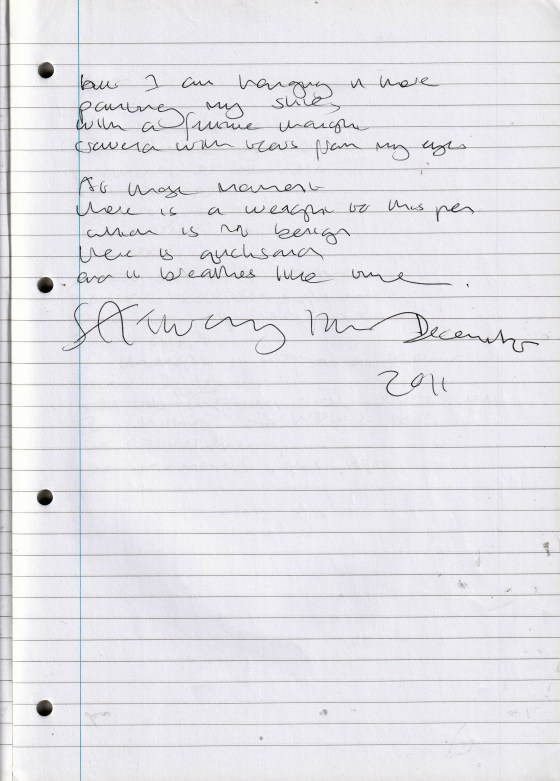 but I am hanging in there
painting my skies
with a
with tears from my eyes
At those moments
there is a weight to this pen
which is not benign
there is quicksand
and it breathes like
December
2011